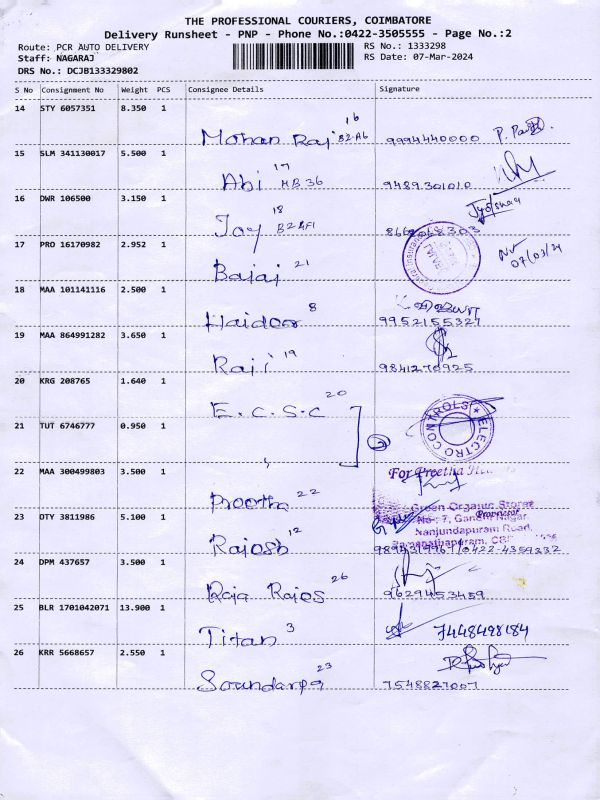 THE PROFESSIONAL COURIERS, COIMBATORE
Delivery Runsheet - PNP - Phone No.:0422-3505555 - Page No.:2
Route: PCR AUTO DELIVERY RS No.: 1333298
Staff: NAGARAJ RS Date: 07-Mar-2024
DRS No.: DCJB133329802
S No Consignment No Weight PCS Consignee Details Signature
14 STY 6057351 8.350 1
Mohan Raj 16 B2-A6 9994440000
15 SLM 341130017 5.500 1
Abi 17 HB 36 9489301010
16 DWR 106500 3.150 1
Joy 18
17 PRO 16170982 2.952 1
Bajaj 21 07/03/24
18 MAA 101141116 2.500 1
Haidoor 8 9952155327
19 MAA 864991282 3.650 1
Raji 19 9841270925
20 KRG 208765 1.640 1
E.C.S.C 20
ELECTRO CONTROLS
21 TUT 6746777 0.950 1
2
22 MAA 300499803 3.500 1
For Preetha
Preetha 22
Green Organic Stores
Proprietor
23 OTY 3811986 5.100 1
No.:7, Gandhi Nagar
Nanjundapuram Road,
Ramanathapuram,
Rajesh 12 0422-4359332
24 DPM 437657 3.500 1
Raja Rajes 26 9629453459
25 BLR 1701042071 13.900 1
Titan 3 7448498184
26 KRR 5668657 2.550 1
Soundarya 23 7548827007